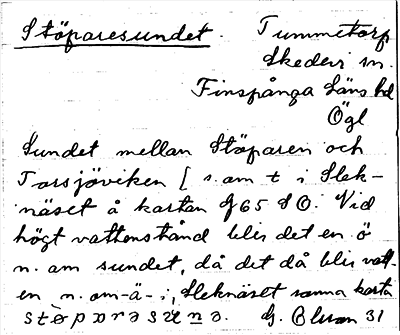 Stöparesundet. Tummetorp
Skedevi sn.
Finspånga läns hd
Ögl
Sundet mellan Stöparen och
Torsjöviken [ s. om t i Slek-
näset å kartan J 65 SO. Vid
högt vattenstånd blir det en ö
n. om sundet, då det då blir vatt-
en n. om -ä- i, Sleknäset samma karta
G. 31